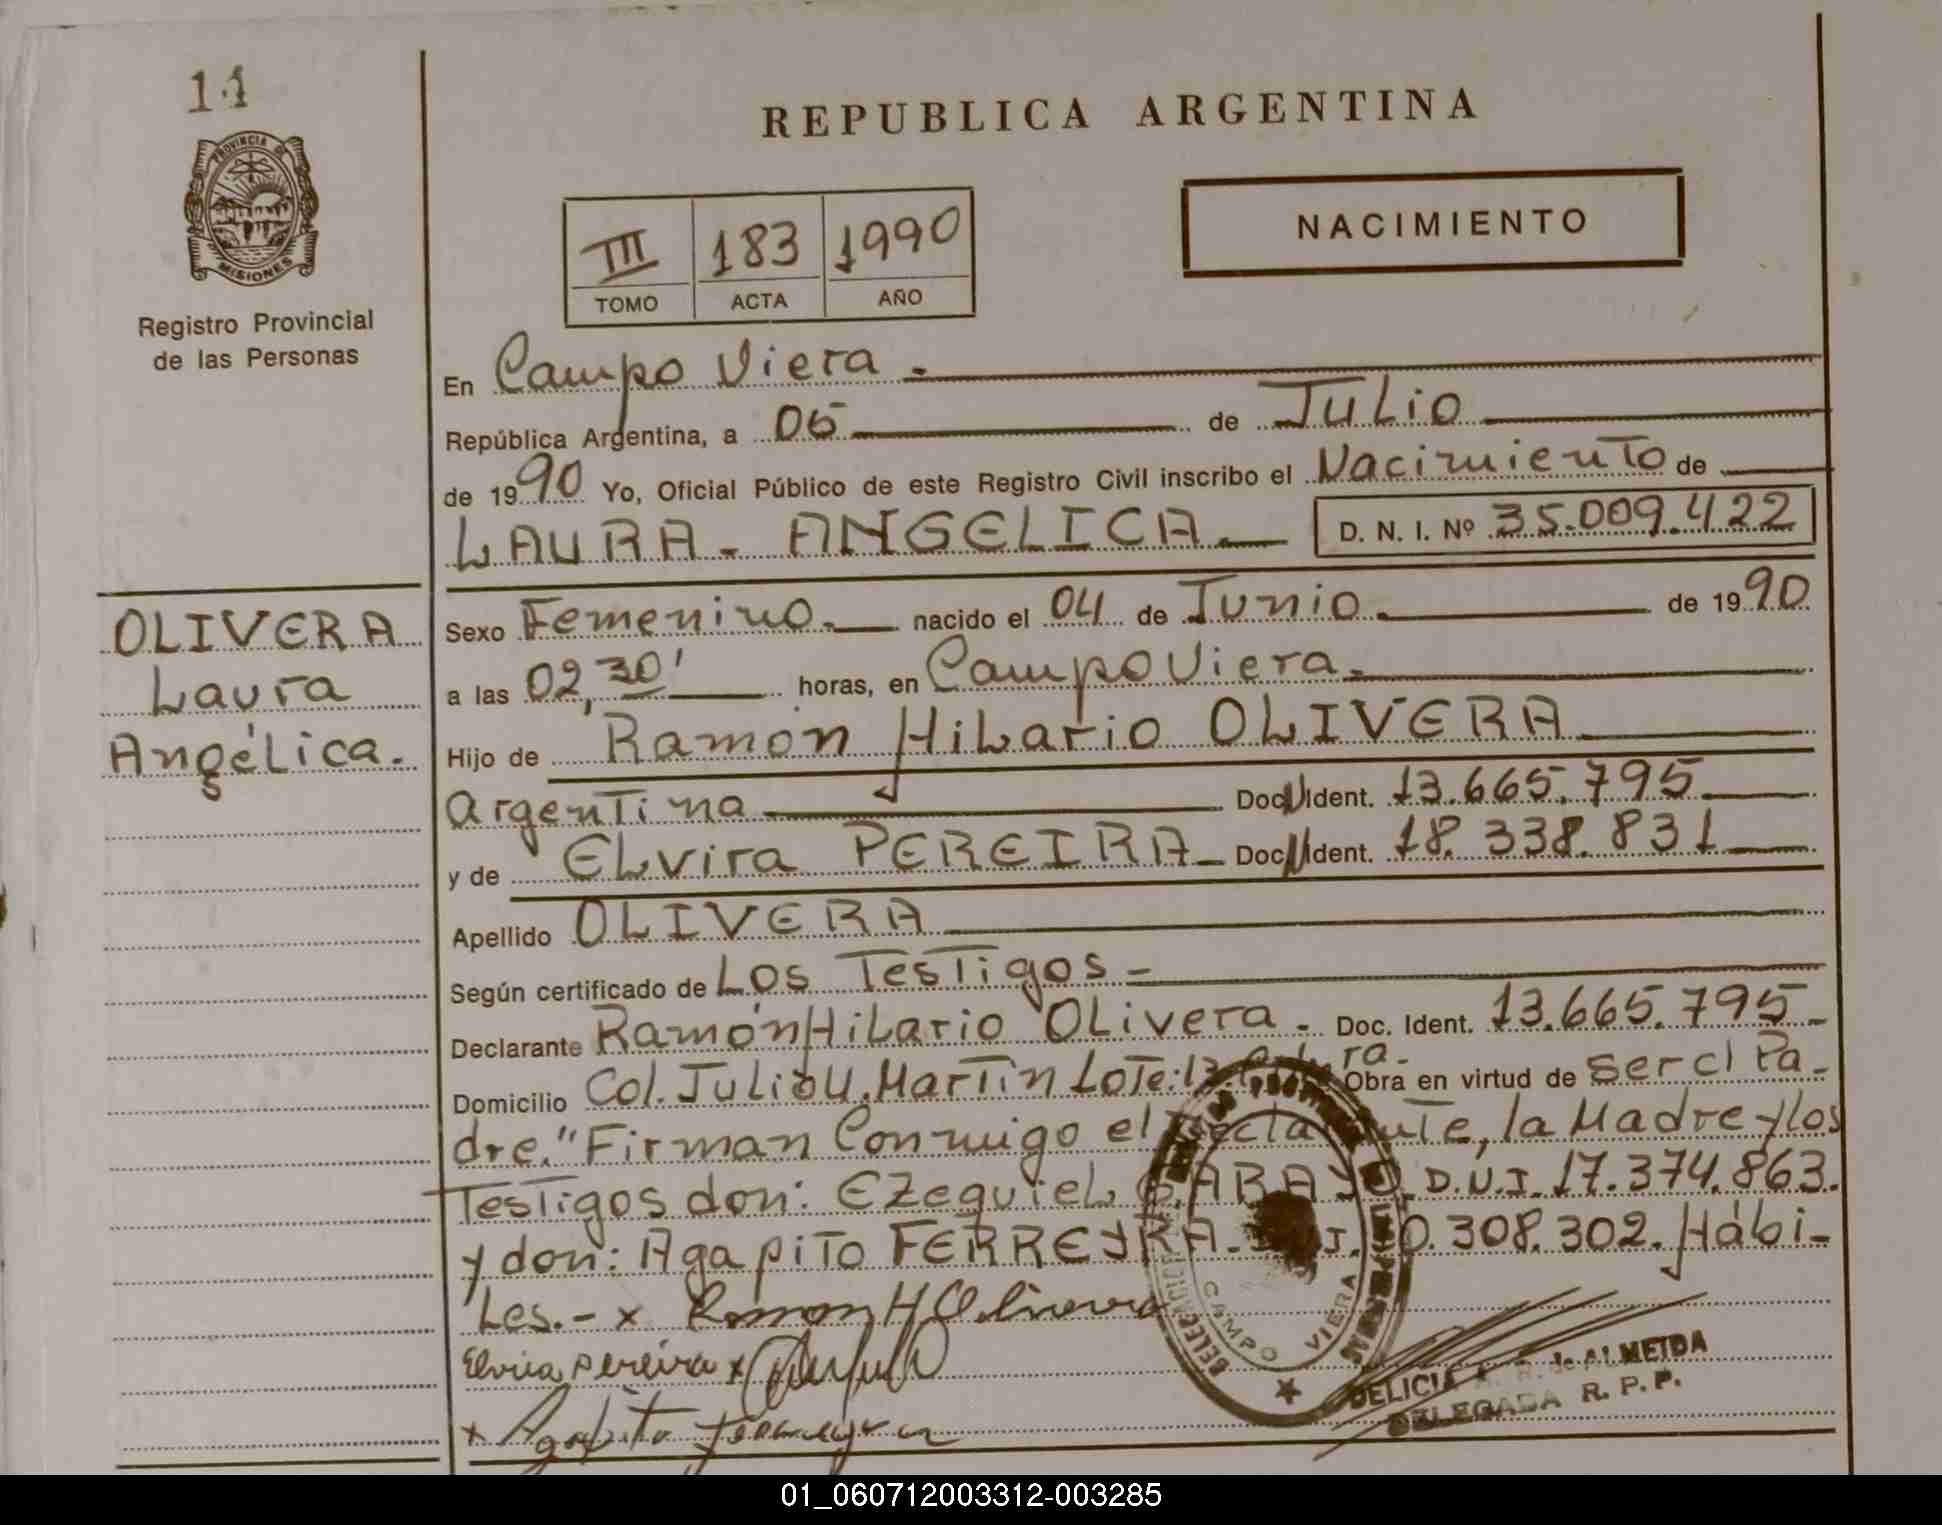 14
PROVINCIA DE
MISIONES
Registro Provincial
de las Personas
REPUBLICA ARGENTINA
NACIMIENTO
III 183 1990
TOMO ACTA AÑO
En Campo Viera.
República Argentina, a 05 de Julio
de 1990 Yo, Oficial Público de este Registro Civil inscribo el Nacimiento de
LAURA - ANGELICA. D. N. I. Nº 35.009.422
OLIVERA
Laura
Angélica.
Sexo Femenino. nacido el 04 de Junio. de 1990
a las 02,30' horas, en Campo Viera.
Hijo de Ramón Hilario OLIVERA
Argentina Doc. Ident. 13.665.795
y de Elvira PEREIRA Doc. Ident. 18.338.831
Apellido OLIVERA
Según certificado de Los Testigos -
Declarante Ramón Hilario Olivera. Doc. Ident. 13.665.795-
Domicilio Col. Julio U. Martin Lote: 13. ra. Obra en virtud de ser el Pa-
dre." Firman Conmigo el Declarante, la Madre y los
Testigos don: Ezequiel GARAY D.N.I. 17.374.863.
y don: Agapito FERREYRA. 308.302. Hábi-
Les.- x Ramon H Olivera
Elvira pereira x
x Agapito ferreyra
CAMPO VIERA
DELICIA de ALMEIDA
DELEGADA R. P. P.
01_060712003312-003285